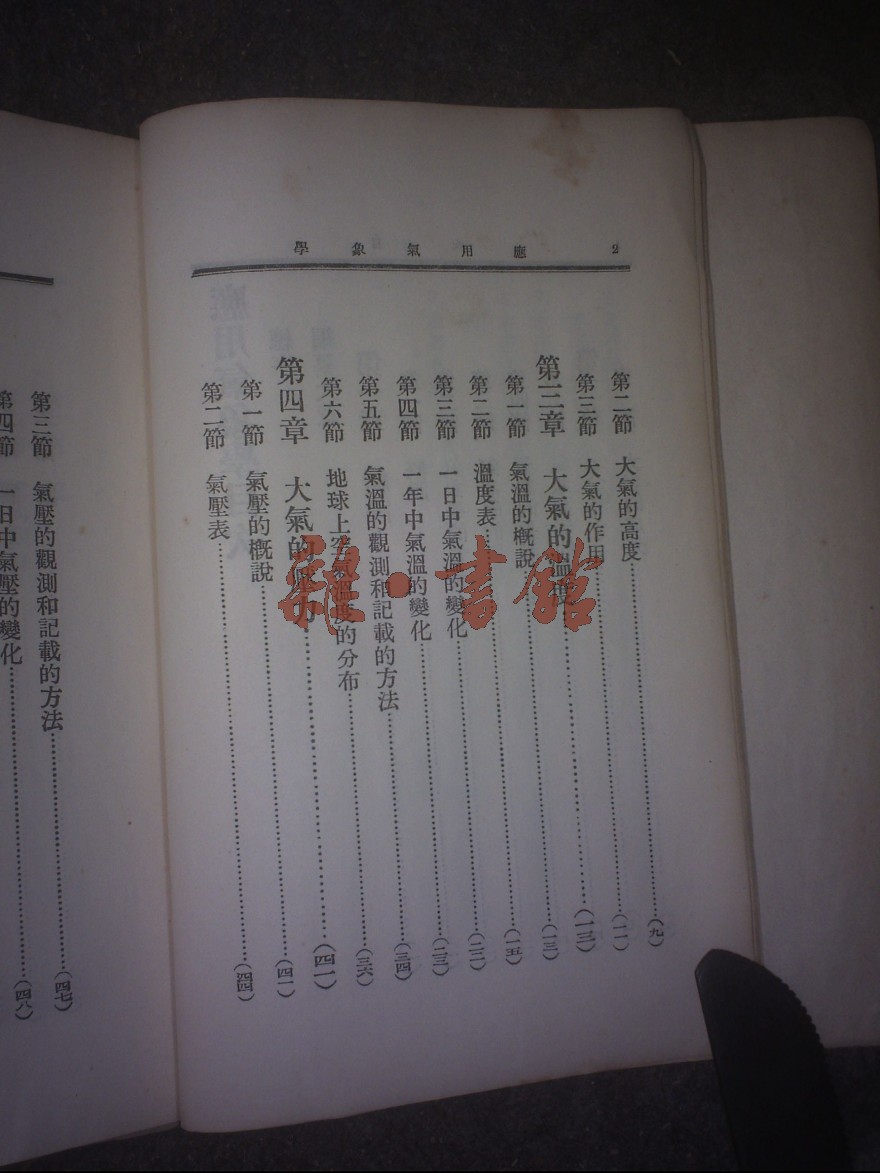 2 應用氣象學
第二節 大氣的高度……(九)
第三節 大氣的作用……(一一)
第三章 大氣的溫度……(一三)
第一節 氣溫的槪說……(一三)
第二節 溫度表……(一五)
第三節 一日中氣溫的變化……(二二)
第四節 一年中氣溫的變化……(二三)
第五節 氣溫的觀測和記載的方法……(三四)
第六節 地球上空氣溫度的分布……(三六)
第四章 大氣的壓力……(四一)
第一節 氣壓的槪說……(四一)
第二節 氣壓表……(四四)
第三節 氣壓的觀測和記載的方法……(四七)
第四節 一日中氣壓的變化……(四八)
雜·書館